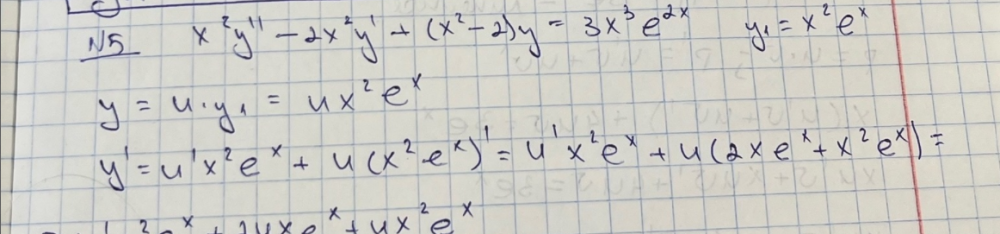 N5 x²y'' - 2x²y' + (x²-2)y = 3x³e²ˣ y₁ = x²eˣ
y = u·y₁ = ux²eˣ
y' = u'x²eˣ + u(x²·eˣ)' = u'x²eˣ + u(2xeˣ + x²eˣ) =
²eˣ + 2uxeˣ + ux²eˣ